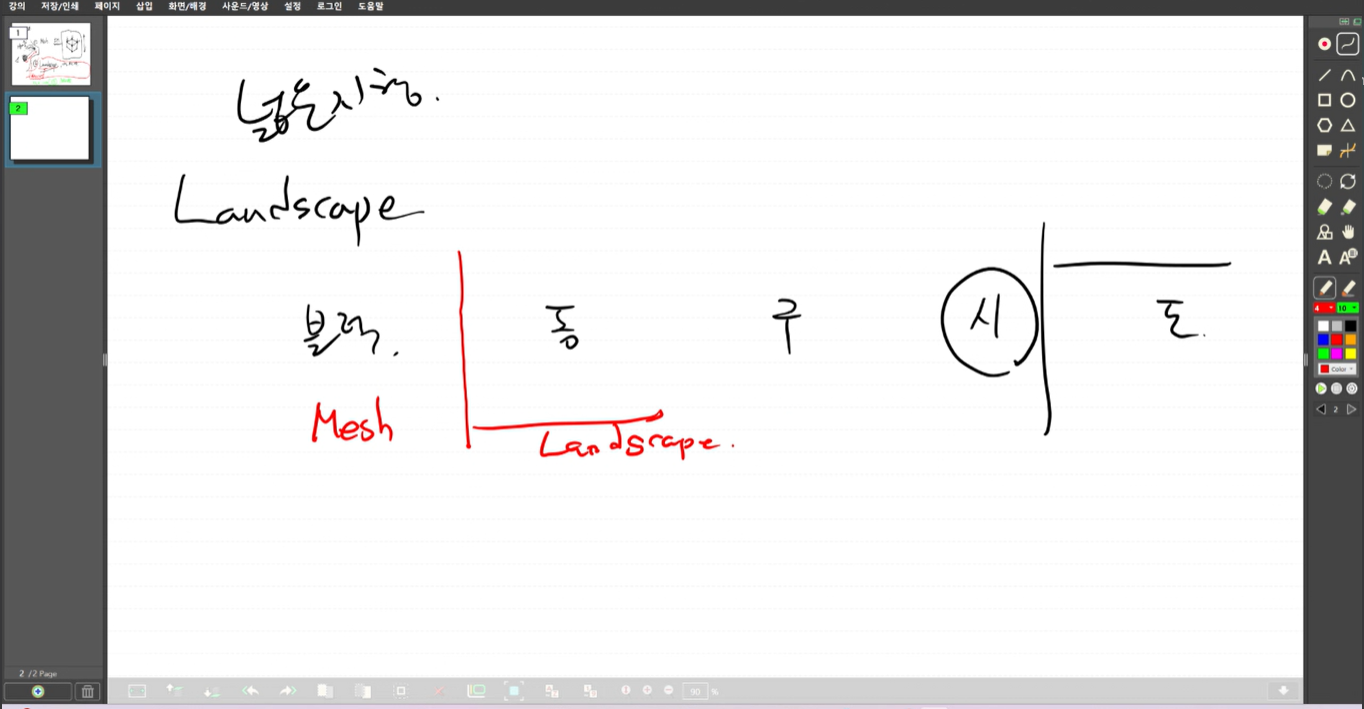 강의 저장/인쇄 페이지 삽입 화면/배경 사운드/영상 설정 로그인 도움말
1
2
넓은지형.
Landscape
블럭. 동 구 시 도.
Mesh
Landscape.
4 10
Color
2
2 /2 Page
90 %